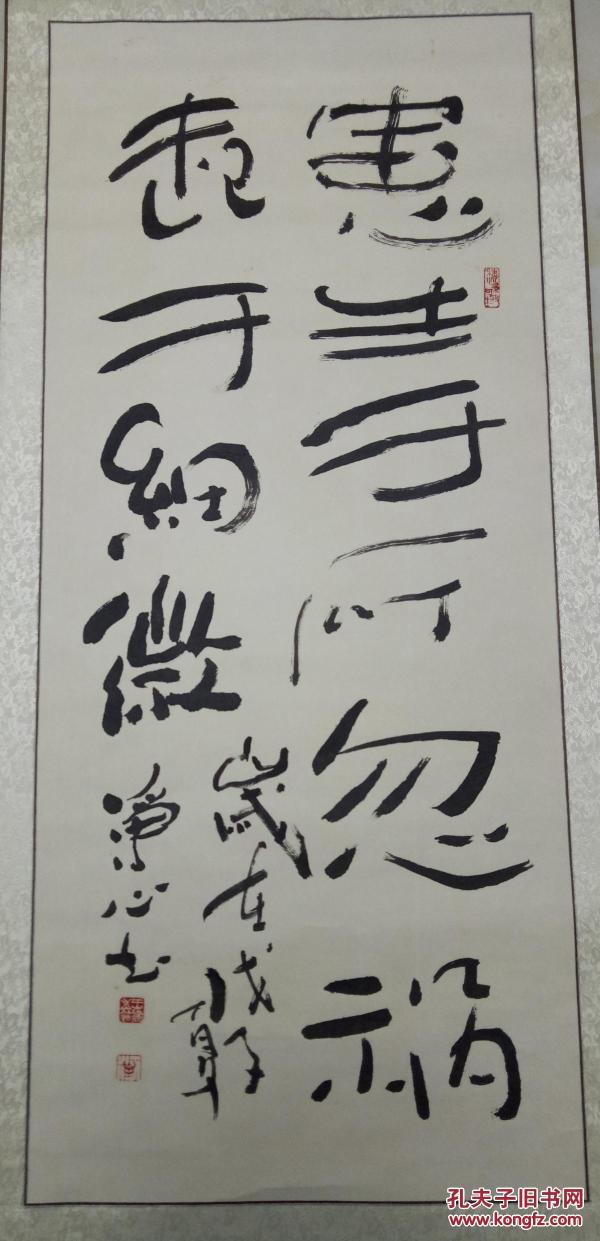 患生于所忽祸
起于細微
歲在戊子夏
净心书
孔夫子旧书网
www.kongfz.com